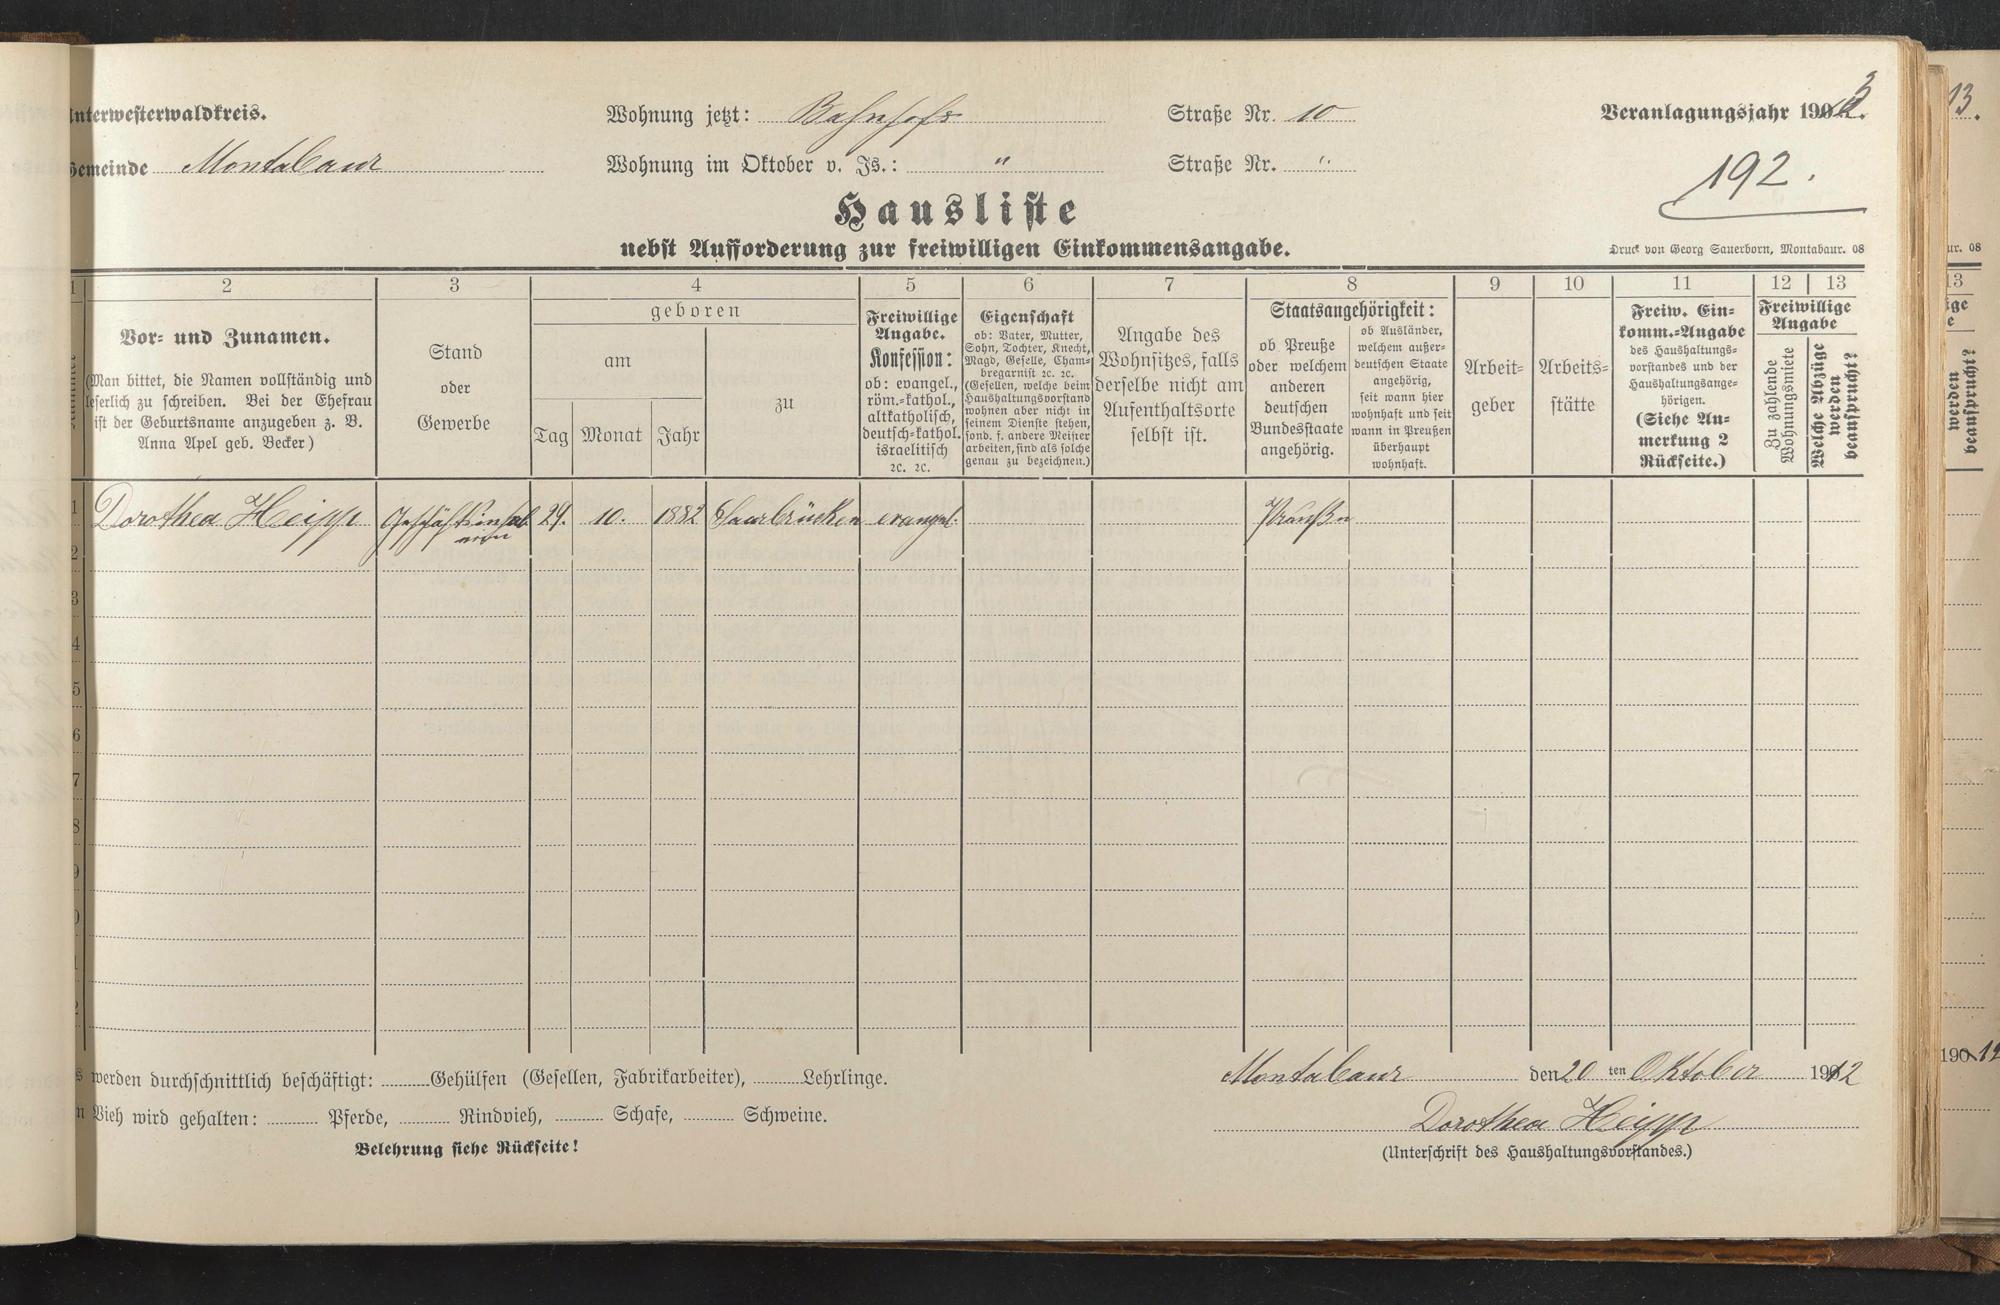 Unterwesterwaldkreis.
Wohnung jetzt: Bahnhofs Straße Nr. 10
Veranlagungsjahr 1913.
Gemeinde Montabaur
Wohnung im Oktober v. Js.: " Straße Nr. "
192.
Hausliste
nebst Aufforderung zur freiwilligen Einkommensangabe.
Druck von Georg Sauerborn, Montabaur. 08
1 2 3 4 5 6 7 8 9 10 11 12 13
Vor- und Zunamen.
(Man bittet, die Namen vollständig und
leserlich zu schreiben. Bei der Ehefrau
ist der Geburtsname anzugeben z. B.
Anna Apel geb. Becker)
Stand
oder
Gewerbe
geboren
am
Tag Monat Jahr
zu
Freiwillige
Angabe.
Konfession:
ob: evangel.,
röm.-kathol.,
altkatholisch,
deutsch-kathol.
israelitisch
ꝛc. ꝛc.
Eigenschaft
ob: Vater, Mutter,
Sohn, Tochter, Knecht,
Magd, Geselle, Cham-
bregarnist ꝛc. ꝛc.
(Gesellen, welche beim
Haushaltungsvorstand
wohnen aber nicht in
seinem Dienste stehen,
sond. f. andere Meister
arbeiten, sind als solche
genau zu bezeichnen.)
Angabe des
Wohnsitzes, falls
derselbe nicht am
Aufenthaltsorte
selbst ist.
Staatsangehörigkeit:
ob Preuße
oder welchem
anderen
deutschen
Bundesstaate
angehörig.
ob Ausländer,
welchem außer-
deutschen Staate
angehörig,
seit wann hier
wohnhaft und seit
wann in Preußen
überhaupt
wohnhaft.
Arbeit-
geber
Arbeits-
stätte
Freiw. Ein-
komm.-Angabe
des Haushaltungs-
vorstandes und der
Haushaltungsange-
hörigen.
(Siehe An-
merkung 2
Rückseite.)
Freiwillige
Angabe
Zu zahlende
Wohnungsmiete
Welche Abzüge
werden
beansprucht?
1 Dorothea Heipp Geschäftsinhab 29. 10. 1882 Saarbrücken evangel. Preußen
erin
2
3
4
5
6
7
8
9
0
1
2
werden durchschnittlich beschäftigt: Gehülfen (Gesellen, Fabrikarbeiter), Lehrlinge.
Montabaur den 20 ten Oktober 1912
Vieh wird gehalten: Pferde, Rindvieh, Schafe, Schweine.
Dorothea Heipp
Belehrung siehe Rückseite!
(Unterschrift des Haushaltungsvorstandes.)
13.
ur. 08
13
ige
e
werden
beansprucht?
190 12